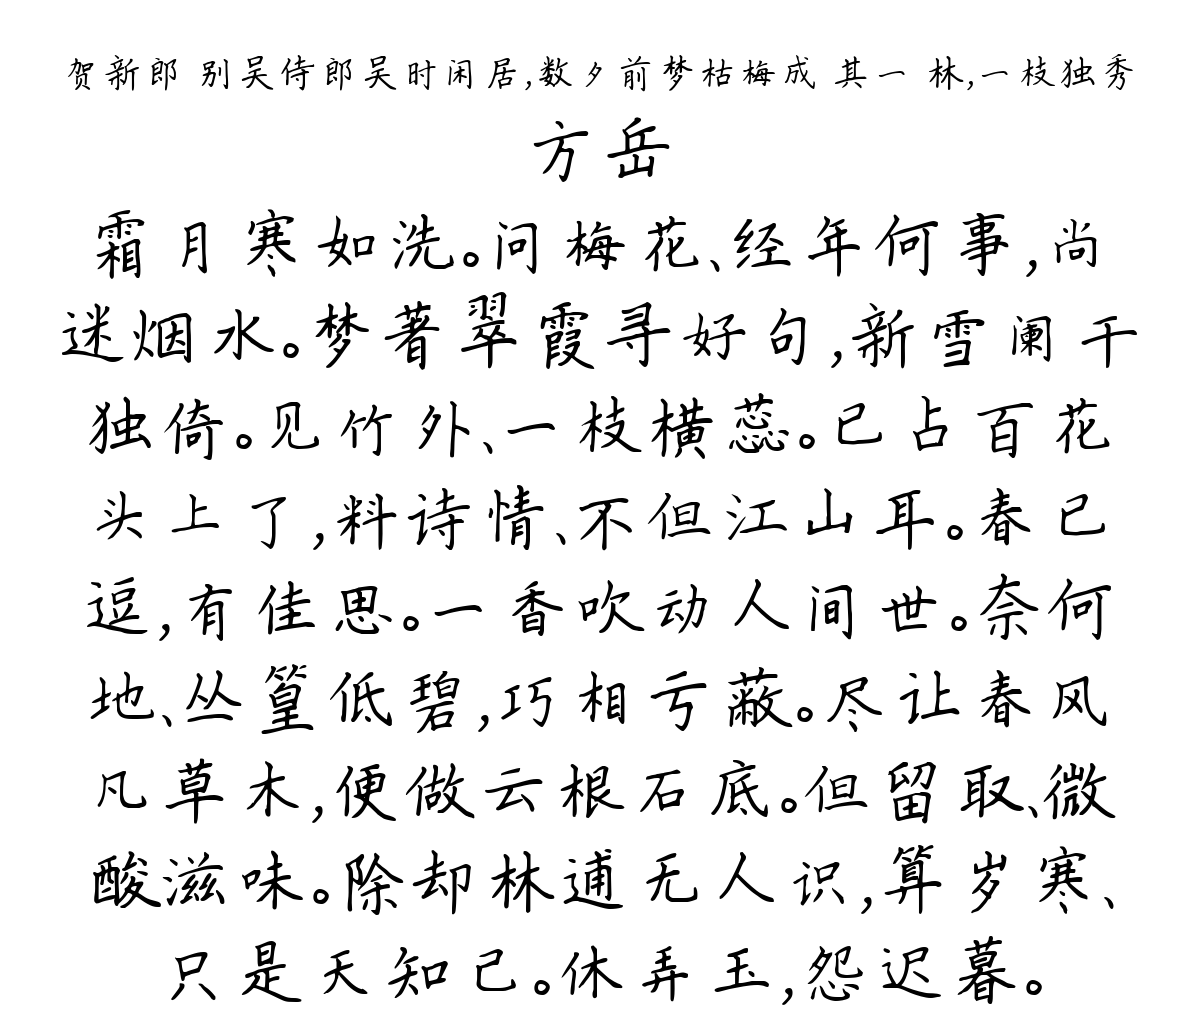 贺新郎 别吴侍郎吴时闲居,数夕前梦枯梅成 其一 林,一枝独秀
方岳
霜月寒如洗。问梅花、经年何事,尚
迷烟水。梦著翠霞寻好句,新雪阑干
独倚。见竹外、一枝横蕊。已占百花
头上了,料诗情、不但江山耳。春已
逗,有佳思。一香吹动人间世。奈何
地、丛篁低碧,巧相亏蔽。尽让春风
凡草木,便做云根石底。但留取、微
酸滋味。除却林逋无人识,算岁寒、
只是天知己。休弄玉,怨迟暮。